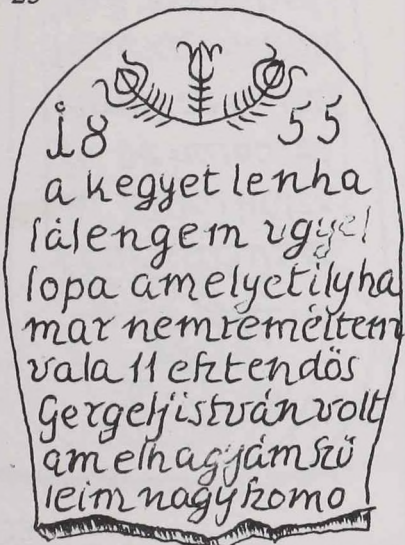 18 55
a kegyetlenha
lálengem vgyel
lopa amelyetilyha
mar nemreméltem
vala 11 eſztendös
Gergeljistvánvolt
amelhagyjámſzü
leim nagyſzomo